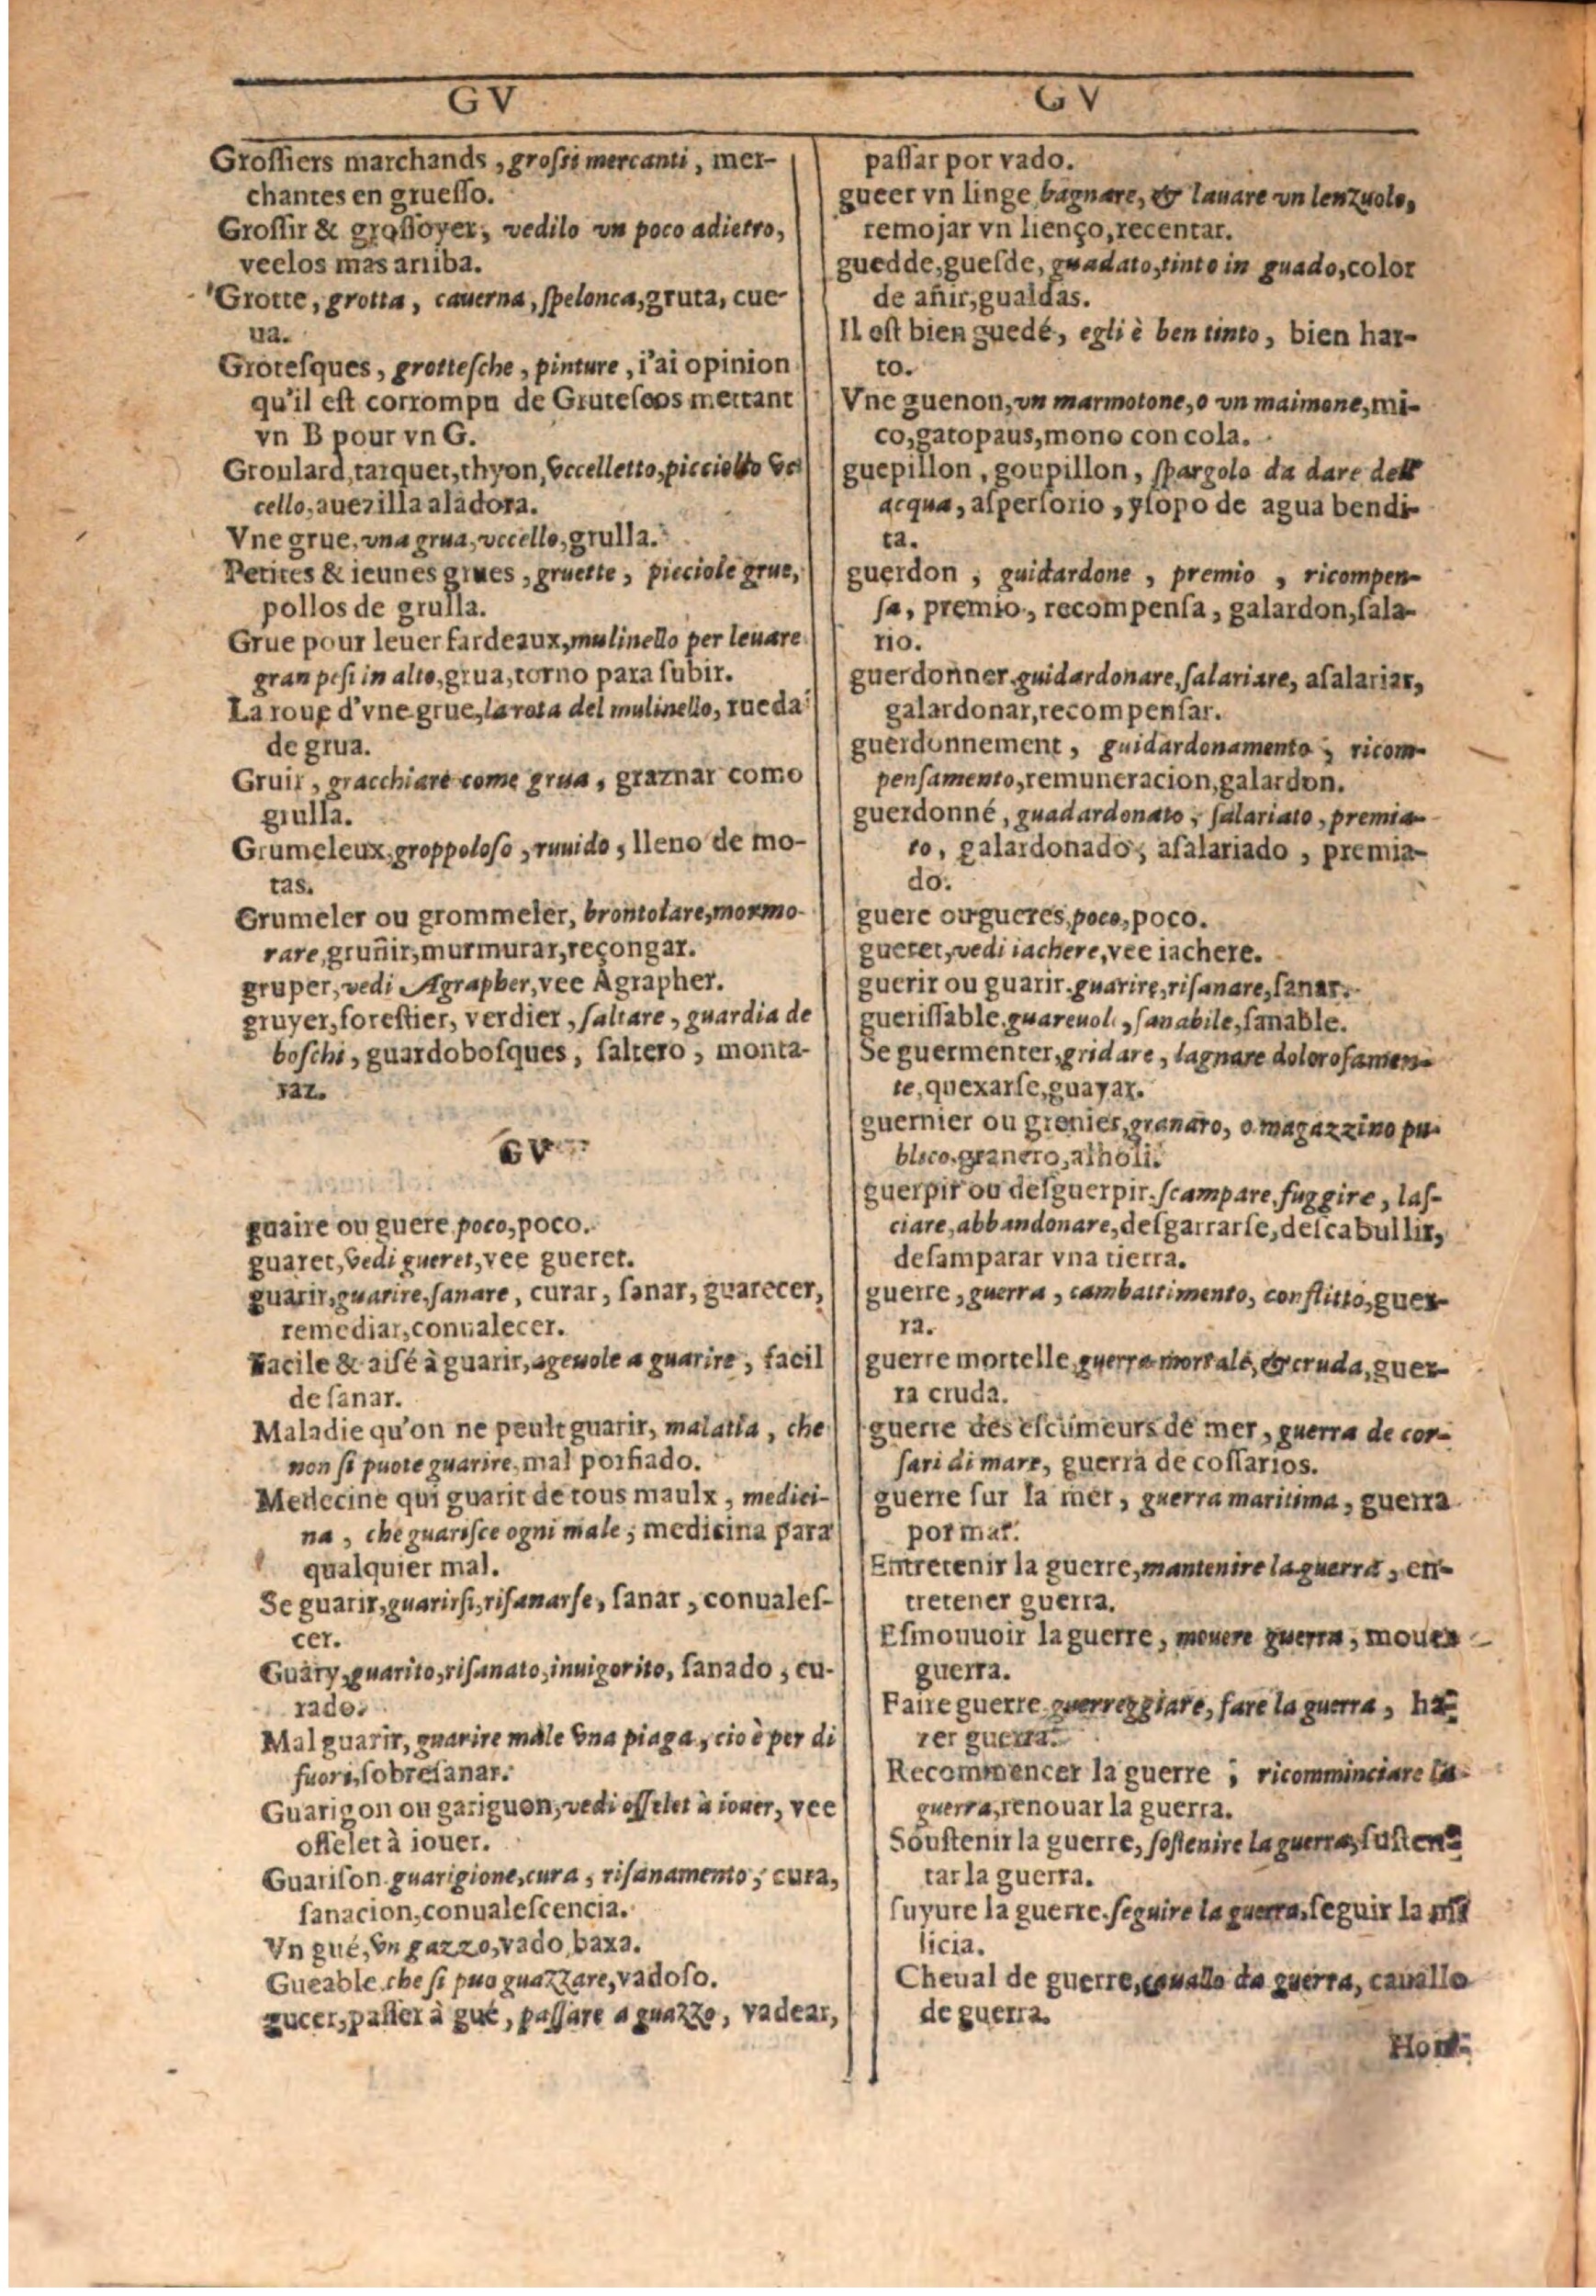 GV
Grossiers marchands, grossi mercanti, mer-
chantes en gruesso.
Grossir & grossoyer, vedilo vn poco adietro,
veelos mas arriba.
Grotte, grotta, cauerna, spelonca, gruta, cue-
ua.
Grotesques, grottesche, pinture, i'ai opinion
qu'il est corrompu de Grutescos mettant
vn B pour vn G.
Groulard, tarquet, thyon, vccelletto, picciolto vc
cello, auezilla aladora.
Vne grue, vna grua, vccello, grulla.
Petites & ieunes grues, gruette, picciole grue,
pollos de grulla.
Grue pour leuer fardeaux, mulinello per leuare
gran pesi in alto, grua, torno para subir.
La roue d'vne grue, la rota del mulinello, rueda
de grua.
Gruir, gracchiare come grua, graznar como
grulla.
Grumeleux, groppoloso, ruuido, lleno de mo-
tas.
Grumeler ou grommeler, brontolare, mormo-
rare, gruñir, murmurar, reçongar.
gruper, vedi Agrapher, vee Agrapher.
gruyer, forestier, verdier, saltare, guardia de
boschi, guardobosques, saltero, monta-
raz.
GV
guaire ou guere poco, poco.
guaret, vedi gueret, vee gueret.
guarir, guarire, sanare, curar, sanar, guarecer,
remediar, conualecer.
Facile & aisé à guarir, ageuole a guarire, facil
de sanar.
Maladie qu'on ne peult guarir, malatia, che
non si puote guarire, mal porfiado.
Medecine qui guarit de tous maulx, medici-
na, che guarisce ogni male, medicina para
qualquier mal.
Se guarir, guarirsi, risanarse, sanar, conuales-
cer.
Guary, guarito, risanato, inuigorito, sanado, cu-
rado.
Mal guarir, guarire male vna piaga, cio è per di
fuori, sobresanar.
Guarigon ou gariguon, vedi osselet à iouer, vee
osselet à iouer.
Guarison guarigione, cura, risanamento, cura,
sanacion, conualescencia.
Vn gué, vn gazzo, vado, baxa.
Gueable che si puo guazzare, vadoso.
gueer, passer à gué, passare a guazzo, vadear,
GV
passar por vado.
gueer vn linge bagnare, & lauare vn lenzuolo,
remojar vn lienço, recentar.
guedde, guesde, guadato, tinto in guado, color
de añir, gualdas.
Il est bien guedé, egli è ben tinto, bien har-
to.
Vne guenon, vn marmotone, o vn maimone, mi-
co, gatopaus, mono con cola.
guepillon, goupillon, spargolo da dare dell'
acqua, aspersorio, ysopo de agua bendi-
ta.
guerdon, guidardone, premio, ricompen-
sa, premio, recompensa, galardon, sala-
rio.
guerdonner guidardonare, salariare, asalariar,
galardonar, recompensar.
guerdonnement, guidardonamento, ricom-
pensamento, remuneracion, galardon.
guerdonné, guadardonato, salariato, premia-
to, galardonado, asalariado, premia-
do.
guere ou gueres, poco, poco.
gueret, vedi iachere, vee iachere.
guerir ou guarir, guarire, risanare, sanar.
guerissable, guareuole, sanabile, sanable.
Se guermenter, gridare, lagnare dolorosamen-
te, quexarse, guayar.
guernier ou grenier, granaro, o magazzino pu-
blico, granero, alholi.
guerpir ou desguerpir, scampare, fuggire, las-
ciare, abbandonare, desgarrarse, descabullir,
desamparar vna tierra.
guerre, guerra, cambattimento, conflitto, guer-
ra.
guerre mortelle, guerra mortale, & cruda, guer-
ra cruda.
guerre des escumeurs de mer, guerra de cor-
sari di mare, guerra de cossarios.
guerre sur la mer, guerra maritima, guerra
por mar.
Entretenir la guerre, mantenire la guerra, en-
tretener guerra.
Esmouuoir la guerre, mouere guerra, mouer
guerra.
Faire guerre, guerreggiare, fare la guerra, ha-
zer guerra.
Recommencer la guerre, ricomminciare la
guerra, renouar la guerra.
Soustenir la guerre, sostenire la guerra, susten-
tar la guerra.
suyure la guerre, seguire la guerra, seguir la mi
licia.
Cheual de guerre, cauallo da guerra, cauallo
de guerra.